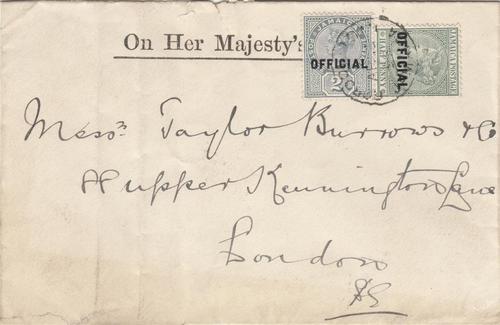 On Her Majesty's
JAMAICA
OFFICIAL
2
OFFICIAL
JAMAICA POSTAGE
Messrs Taylor Burrows & Co
88 Upper Kennington Lane
London
SE